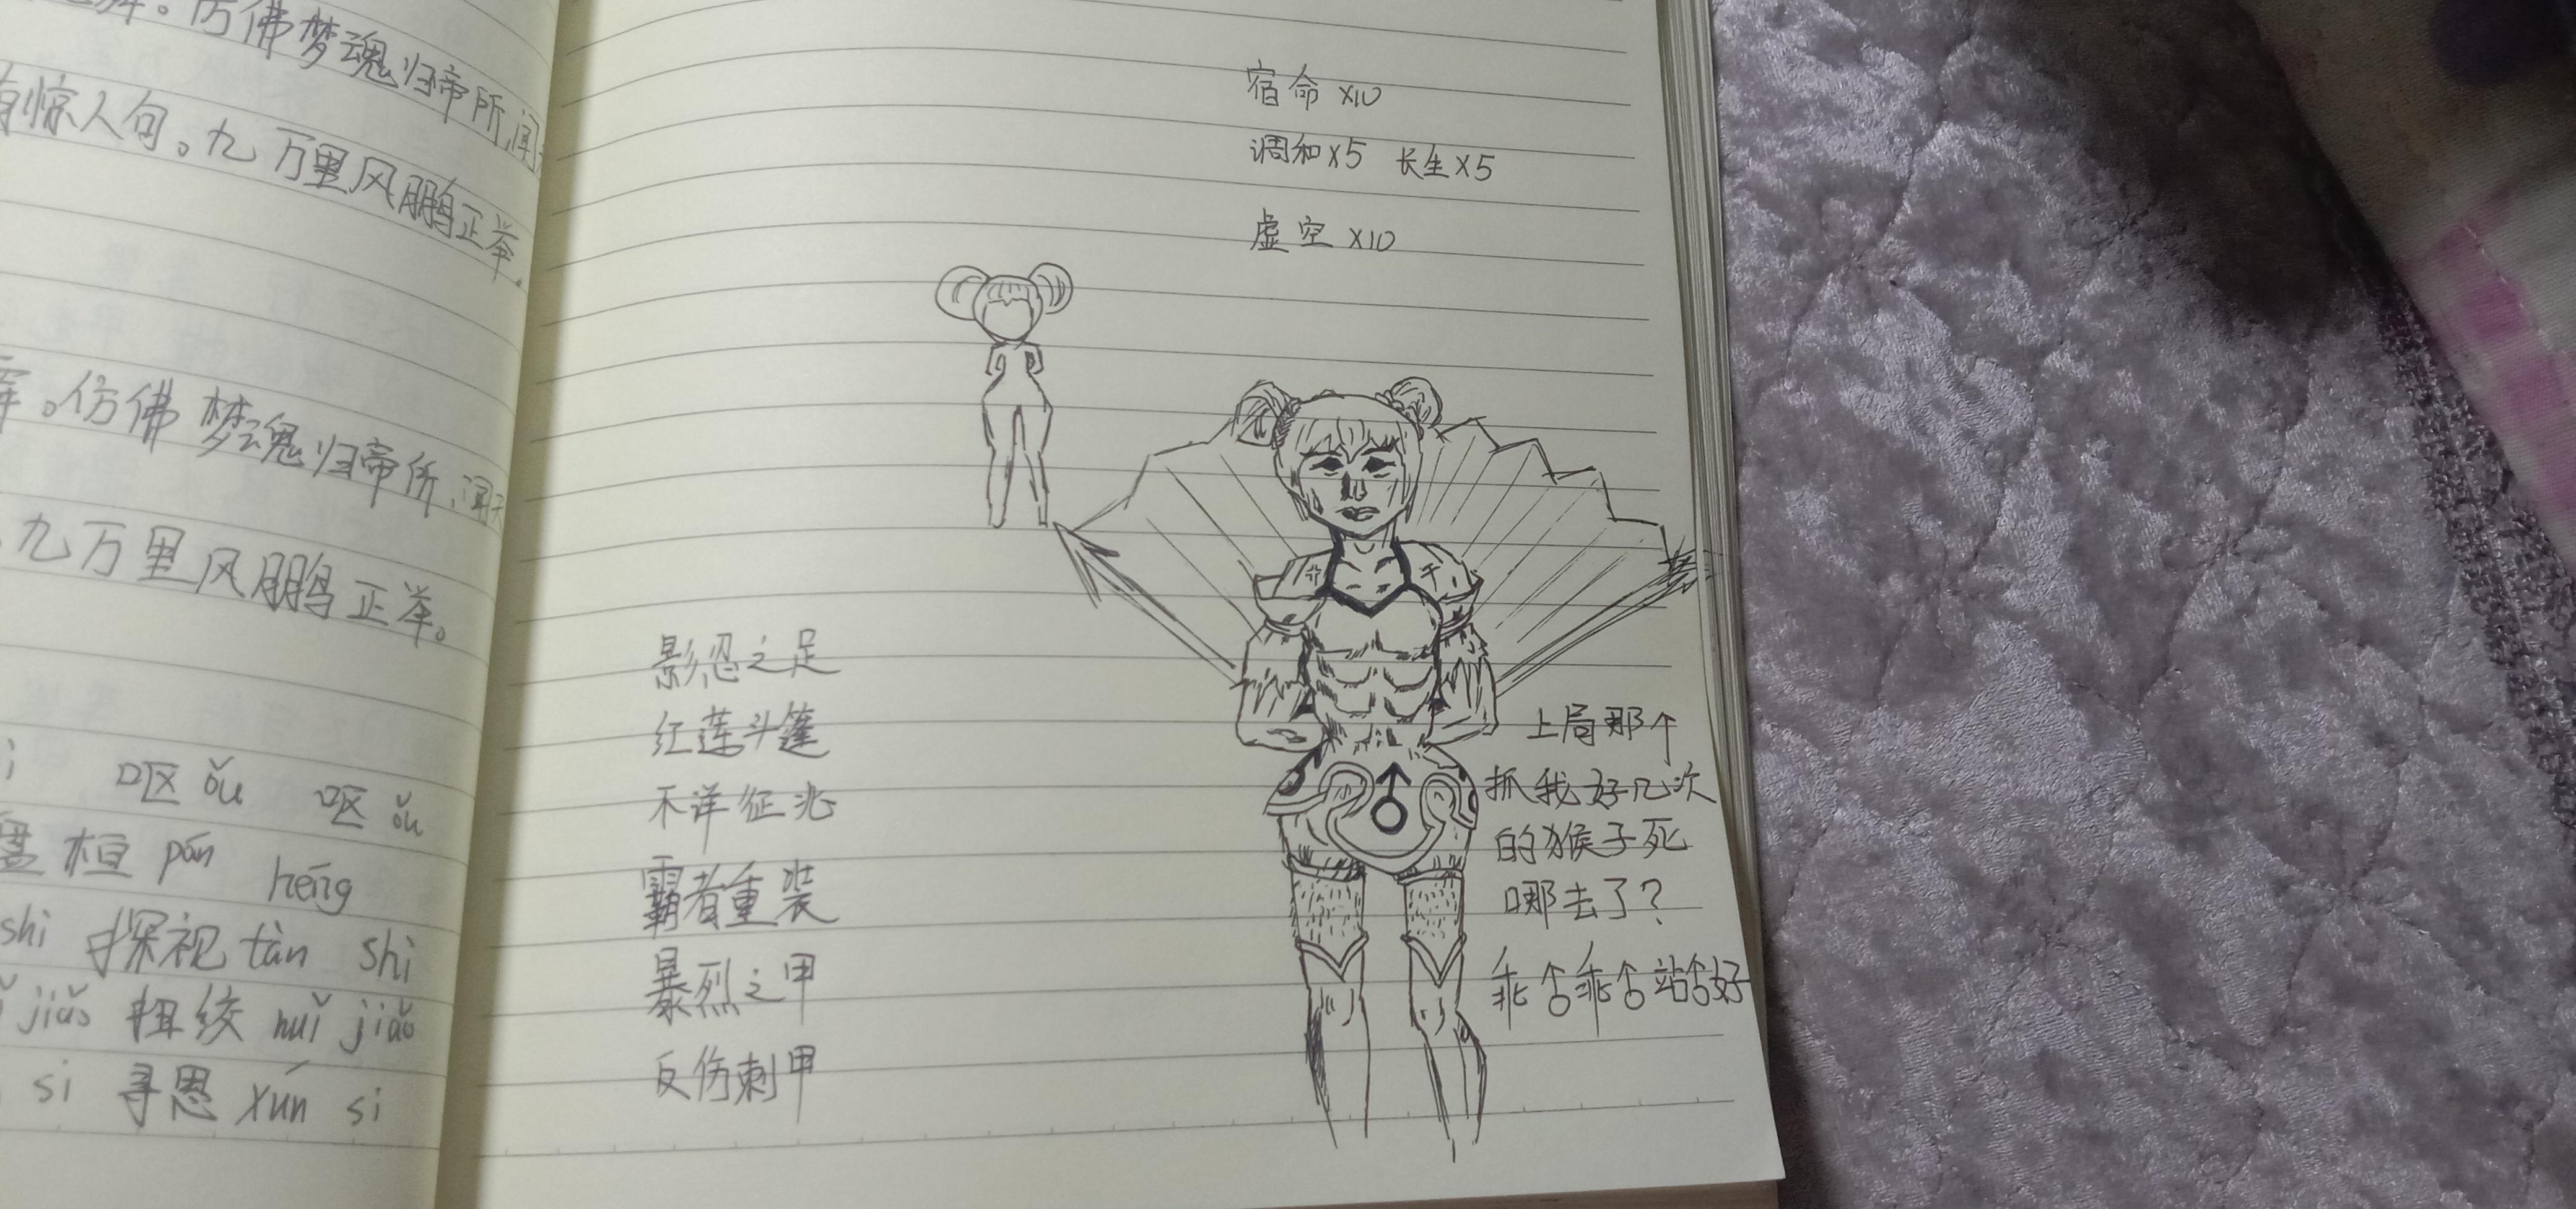 。仿佛梦魂归帝所,闻
有惊人句。九万里风鹏正举。
。仿佛梦魂归帝所,闻天
九万里风鹏正举。
呕 ǒu 呕 ǒu
盘桓 pán héng
shì 探视 tàn shì
jiǎo 扭绞 nuǐ jiǎo
si 寻思 xún si
宿命 x10
调和x5 长生x5
虚空 x10
影忍之足
红莲斗篷
不详征兆
霸者重装
暴烈之甲
反伤刺甲
上局那个
抓我好几次
的猴子死
哪去了?
乖♂乖♂站♂好